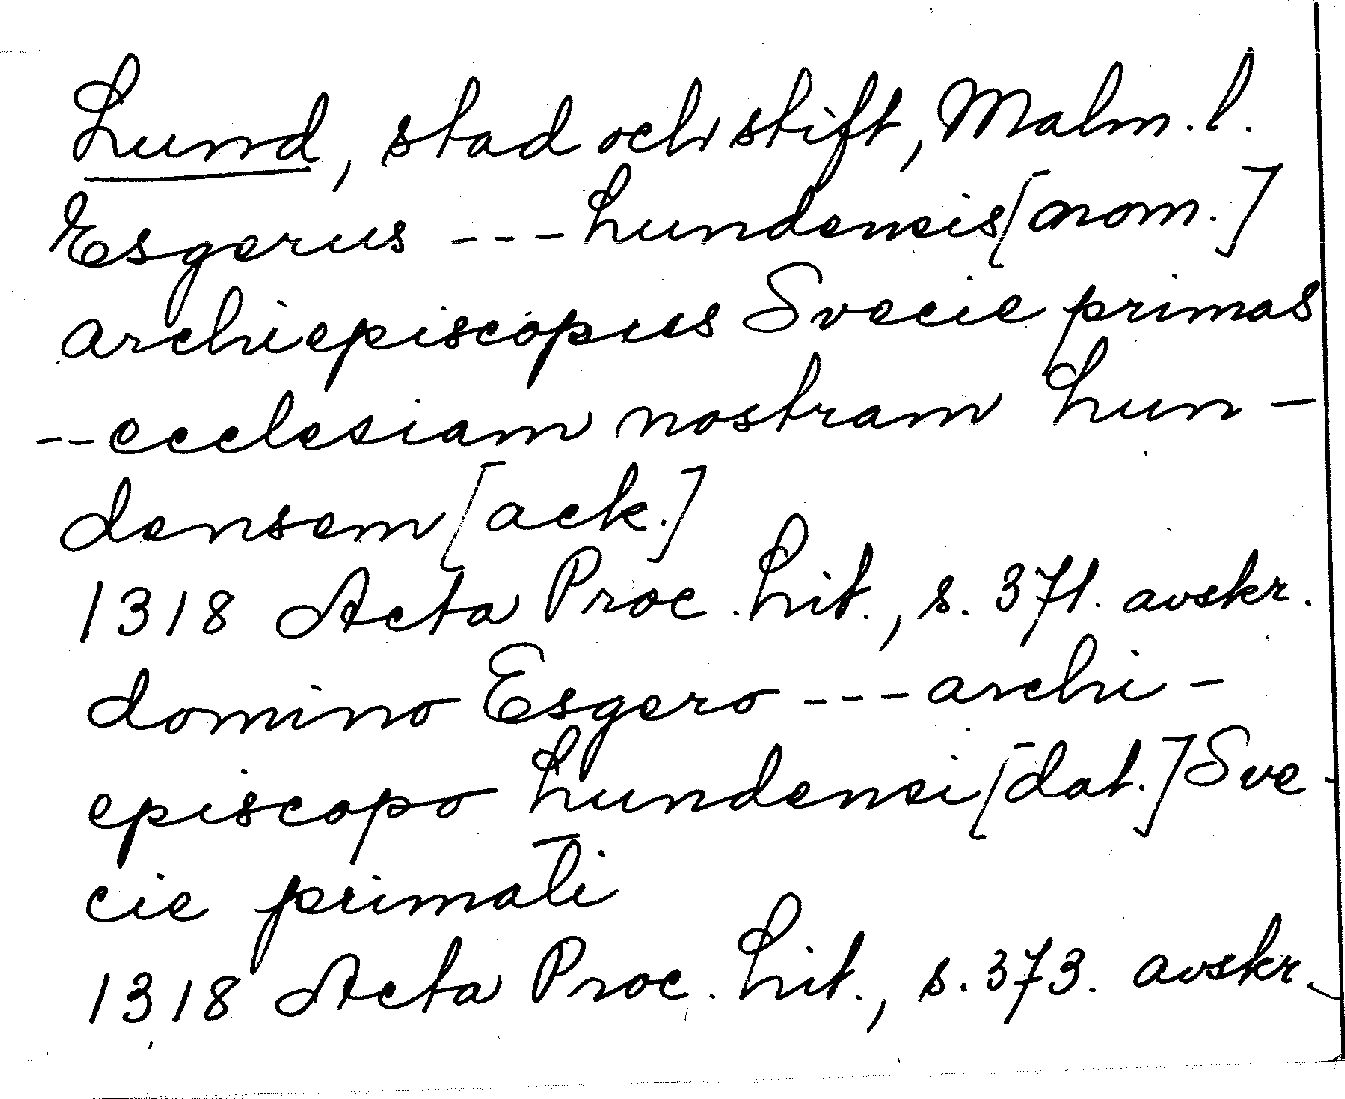 Lund, stad och stift, Malm. l.
Esgerus --- Lundensis [nom.]
archiepiscopus Svecie primas
-- ecclesiam nostram Lun-
densem [ack.]
1318 Acta Proc. Lit., s. 371. avskr.
domino Esgero --- archi-
episcopo Lundensi [dat.] Sve-
cie primati
1318 Acta Proc. Lit., s. 373. avskr.